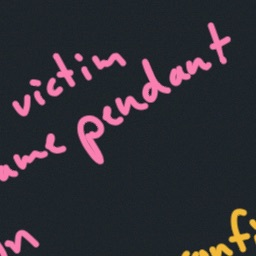 victim
ame pendant
in
confi